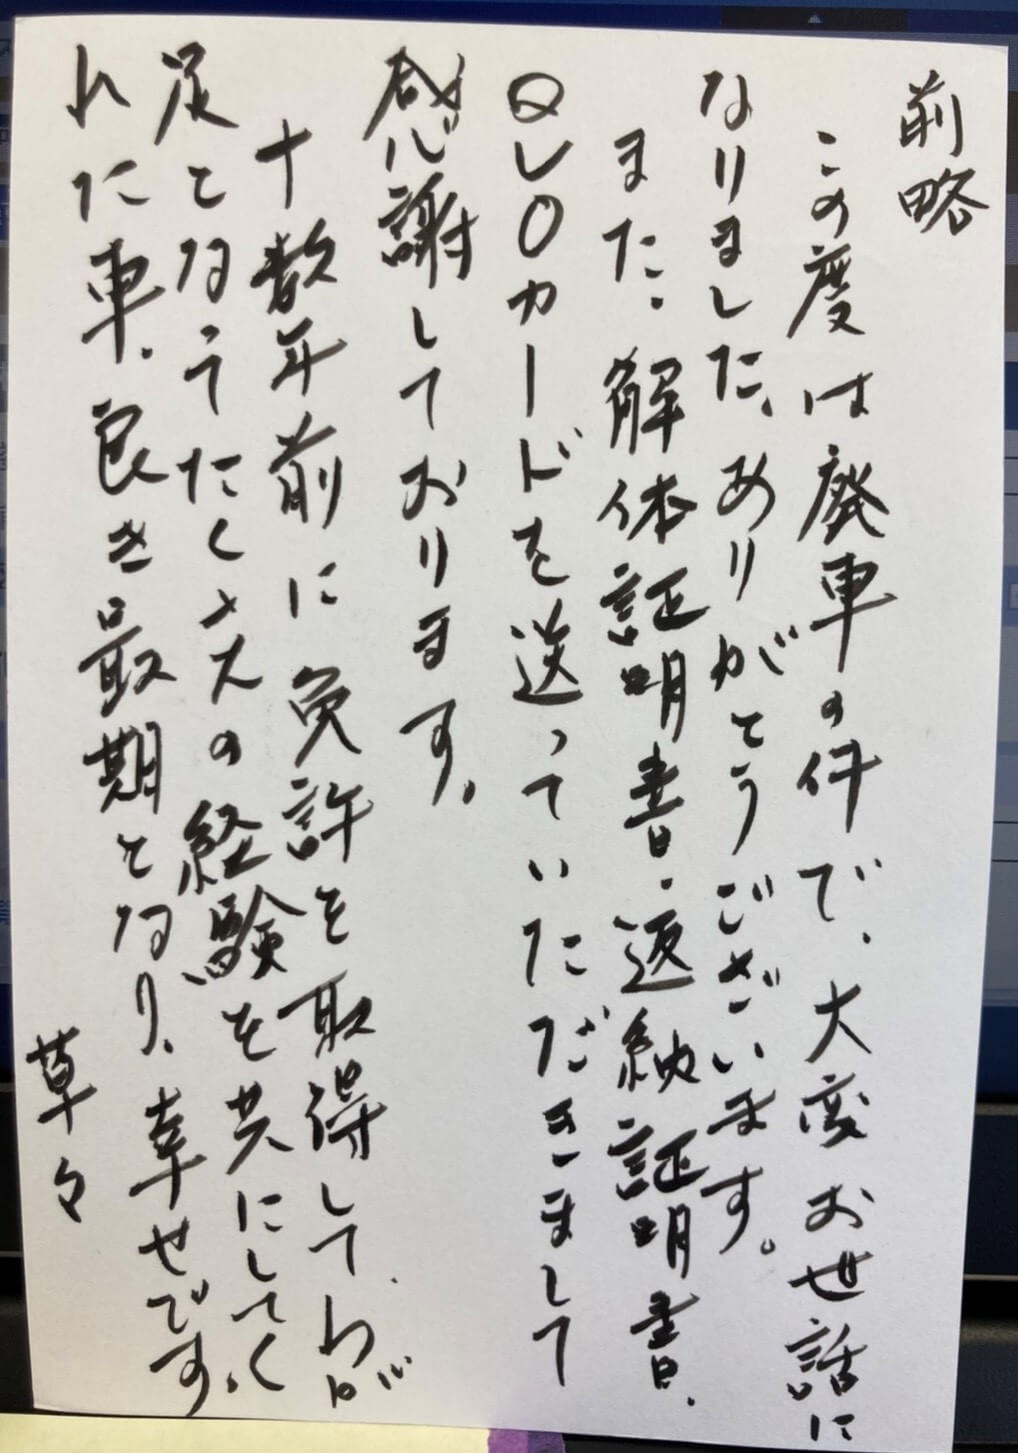 前略
この度は廃車の件で、大変お世話に
なりました。ありがとうございます。
また、解体証明書、返納証明書、
QUOカードを送っていただきまして
感謝しております。
十数年前に免許を取得して、わが
足となってたくさんの経験を共にしてく
れた車、良き最期となり、幸せです。
草々